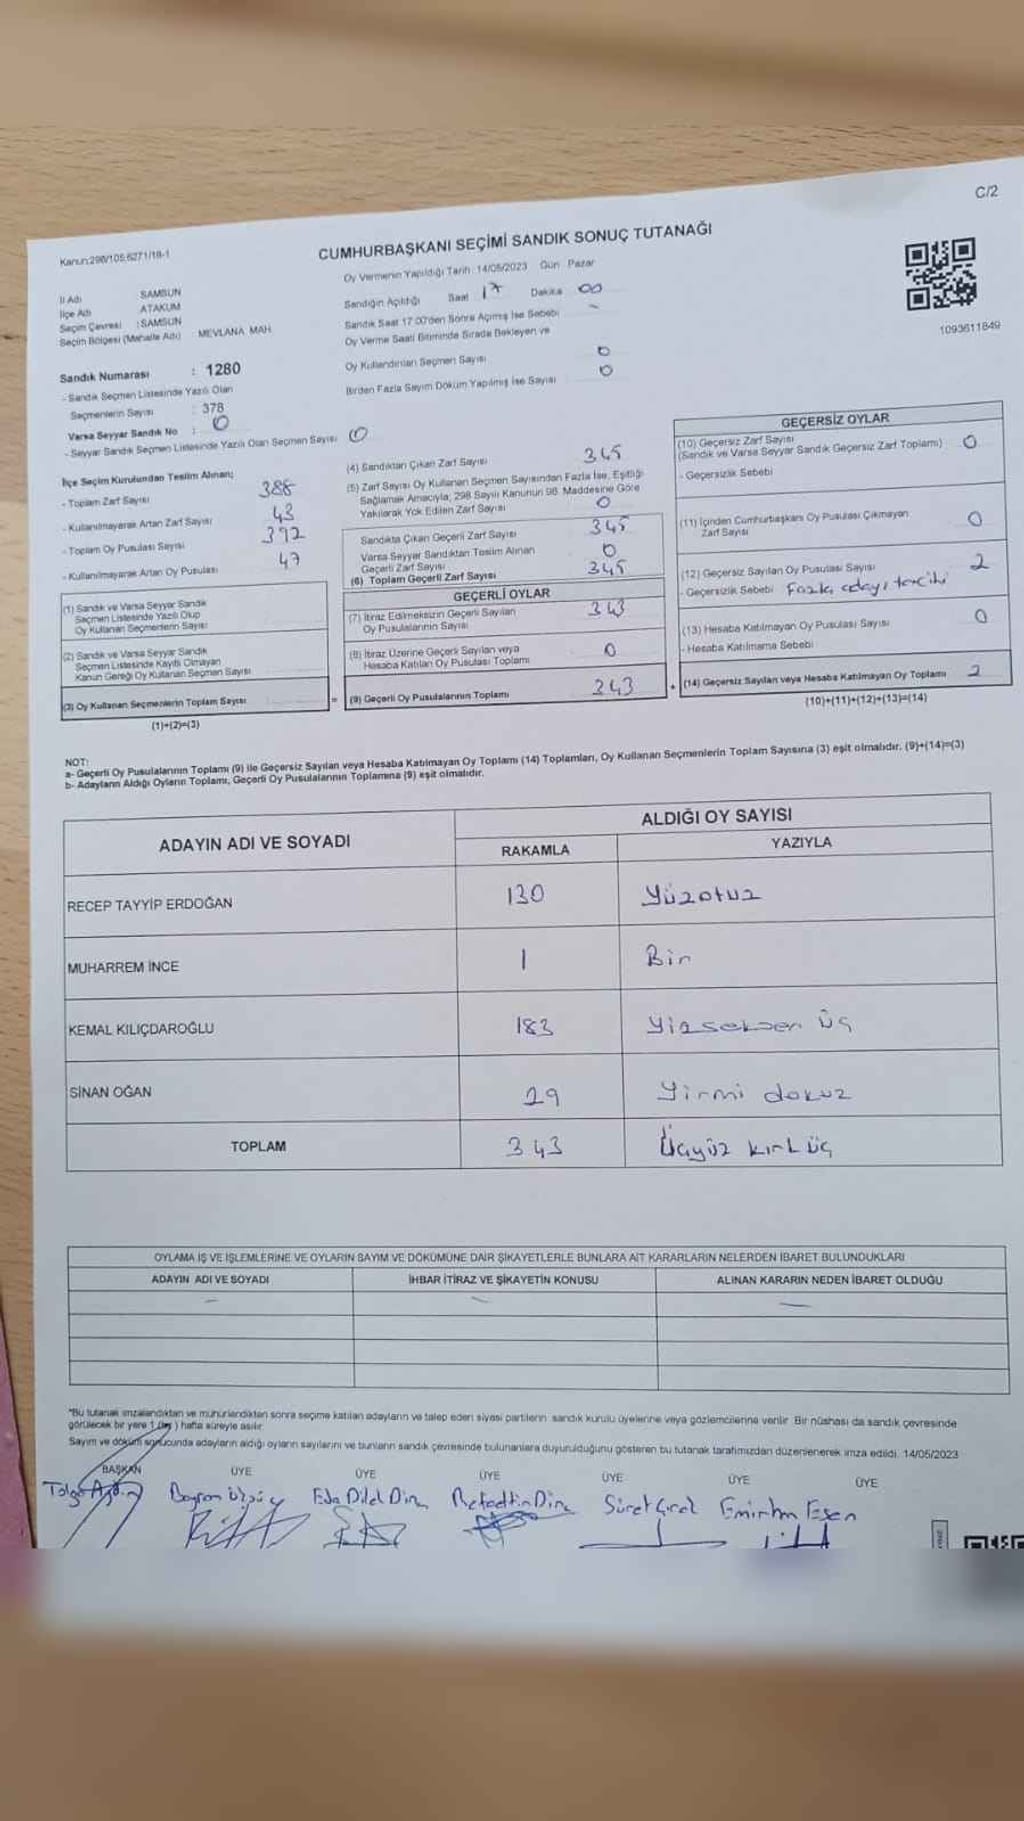 C/2
Kanun:298/105;6271/18-1
CUMHURBAŞKANI SEÇİMİ SANDIK SONUÇ TUTANAĞI
Oy Vermenin Yapıldığı Tarih: 14/05/2023 Gün Pazar
İl Adı SAMSUN
İlçe Adı ATAKUM
Seçim Çevresi : SAMSUN
Seçim Bölgesi (Mahalle Adı) MEVLANA MAH.
Sandığın Açıldığı Saat 17 Dakika 00
Sandık Saat 17:00'den Sonra Açılmış İse Sebebi -
Oy Verme Saati Bitiminde Sırada Bekleyen ve
Oy Kullandırılan Seçmen Sayısı 0
Birden Fazla Sayım Döküm Yapılmış İse Sayısı 0
1093611849
Sandık Numarası : 1280
- Sandık Seçmen Listesinde Yazılı Olan
Seçmenlerin Sayısı : 378
Varsa Seyyar Sandık No : 0
- Seyyar Sandık Seçmen Listesinde Yazılı Olan Seçmen Sayısı 0
İlçe Seçim Kurulundan Teslim Alınan;
- Toplam Zarf Sayısı 388
- Kullanılmayarak Artan Zarf Sayısı 43
- Toplam Oy Pusulası Sayısı 392
- Kullanılmayarak Artan Oy Pusulası 47
(1) Sandık ve Varsa Seyyar Sandık
Seçmen Listesinde Yazılı Olup
Oy Kullanan Seçmenlerin Sayısı
(2) Sandık ve Varsa Seyyar Sandık
Seçmen Listesinde Kayıtlı Olmayan
Kanun Gereği Oy Kullanan Seçmen Sayısı
(3) Oy Kullanan Seçmenlerin Toplam Sayısı =
(1)+(2)=(3)
(4) Sandıktan Çıkan Zarf Sayısı 345
(5) Zarf Sayısı Oy Kullanan Seçmen Sayısından Fazla İse, Eşitliği
Sağlamak Amacıyla; 298 Sayılı Kanunun 98. Maddesine Göre
Yakılarak Yok Edilen Zarf Sayısı 0
Sandıkta Çıkan Geçerli Zarf Sayısı 345
Varsa Seyyar Sandıktan Teslim Alınan
Geçerli Zarf Sayısı 0
(6) Toplam Geçerli Zarf Sayısı 345
GEÇERLİ OYLAR
(7) İtiraz Edilmeksizin Geçerli Sayılan
Oy Pusulalarının Sayısı 343
(8) İtiraz Üzerine Geçerli Sayılan veya
Hesaba Katılan Oy Pusulası Toplamı 0
(9) Geçerli Oy Pusulalarının Toplamı 343 +
GEÇERSİZ OYLAR
(10) Geçersiz Zarf Sayısı
(Sandık ve Varsa Seyyar Sandık Geçersiz Zarf Toplamı) 0
- Geçersizlik Sebebi
(11) İçinden Cumhurbaşkanı Oy Pusulası Çıkmayan
Zarf Sayısı 0
(12) Geçersiz Sayılan Oy Pusulası Sayısı 2
- Geçersizlik Sebebi Fazla adayı tercihi
(13) Hesaba Katılmayan Oy Pusulası Sayısı 0
- Hesaba Katılmama Sebebi
(14) Geçersiz Sayılan veya Hesaba Katılmayan Oy Toplamı 2
(10)+(11)+(12)+(13)=(14)
NOT:
a- Geçerli Oy Pusulalarının Toplamı (9) ile Geçersiz Sayılan veya Hesaba Katılmayan Oy Toplamı (14) Toplamları, Oy Kullanan Seçmenlerin Toplam Sayısına (3) eşit olmalıdır. (9)+(14)=(3)
b- Adayların Aldığı Oyların Toplamı, Geçerli Oy Pusulalarının Toplamına (9) eşit olmalıdır.
ADAYIN ADI VE SOYADI
ALDIĞI OY SAYISI
RAKAMLA YAZIYLA
RECEP TAYYİP ERDOĞAN 130 Yüzotuz
MUHARREM İNCE 1 Bir
KEMAL KILIÇDAROĞLU 183 Yüzseksen üç
SİNAN OĞAN 29 Yirmi dokuz
TOPLAM 343 Üçyüz kırk üç
OYLAMA İŞ VE İŞLEMLERİNE VE OYLARIN SAYIM VE DÖKÜMÜNE DAİR ŞİKAYETLERLE BUNLARA AİT KARARLARIN NELERDEN İBARET BULUNDUKLARI
ADAYIN ADI VE SOYADI İHBAR İTİRAZ VE ŞİKAYETİN KONUSU ALINAN KARARIN NEDEN İBARET OLDUĞU
- - -
*Bu tutanak imzalandıktan ve mühürlendikten sonra seçime katılan adayların ve talep eden siyasi partilerin sandık kurulu üyelerine veya gözlemcilerine verilir. Bir nüshası da sandık çevresinde
görülecek bir yere 1 (bir) hafta süreyle asılır.
Sayım ve döküm sonucunda adayların aldığı oyların sayılarını ve bunların sandık çevresinde bulunanlara duyurulduğunu gösteren bu tutanak tarafımızdan düzenlenerek imza edildi. 14/05/2023
BAŞKAN ÜYE ÜYE ÜYE ÜYE ÜYE ÜYE
Eda Dilek Dinç Esen